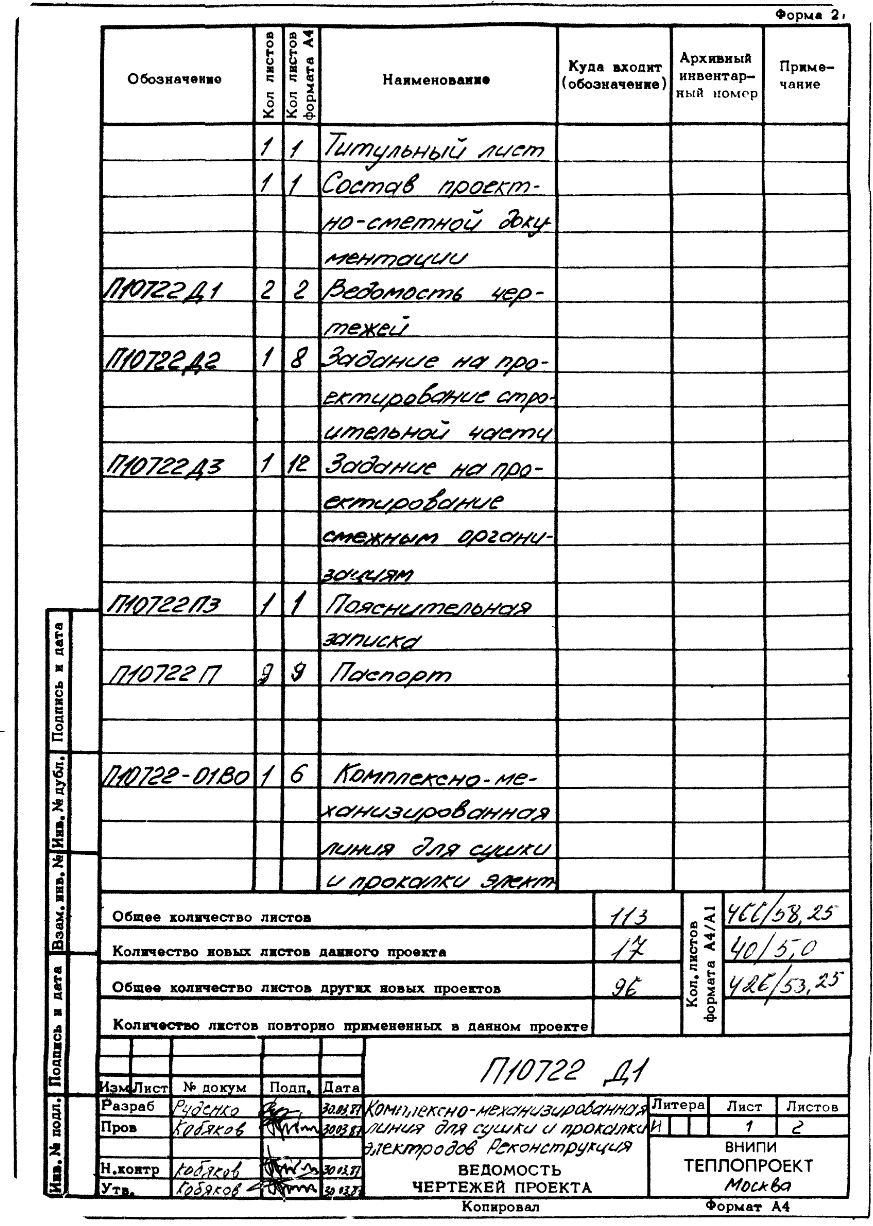 Форма 2
Обозначение Кол листов Кол листов формата А4 Наименование Куда входит (обозначение) Архивный инвентарный номер Примечание
1 1 Титульный лист
1 1 Состав проект-
но-сметной доку-
ментации
П10722Д1 2 2 Ведомость чер-
тежей
П10722Д2 1 8 Задание на про-
ектирование стро-
ительной части
П10722Д3 1 12 Задание на про-
ектирование
смежным органи-
зациям
П10722ПЗ 1 1 Пояснительная
записка
П10722П 9 9 Паспорт
П10722-01ВО 1 6 Комплексно-ме-
ханизированная
линия для сушки
и прокалки элект
Общее количество листов 113
Количество новых листов данного проекта 17
Общее количество листов других новых проектов 96
Количество листов повторно примененных в данном проекте
Кол. листов формата А4/А1
466/58,25
40/5,0
426/53,25
П10722 Д1
Изм Лист № докум Подп. Дата
Разраб Руденко 30.03.87
Пров Кобяков 30.03.87
Н.контр Кобяков 30.03.87
Утв. Кобяков 30.03.87
Комплексно-механизированная
линия для сушки и прокалки
электродов Реконструкция
ВЕДОМОСТЬ
ЧЕРТЕЖЕЙ ПРОЕКТА
Литера Лист Листов
И 1 2
ВНИПИ
ТЕПЛОПРОЕКТ
Москва
Копировал Формат А4
Инв. № подл. Подпись и дата Взам. инв. № Инв. № дубл. Подпись и дата